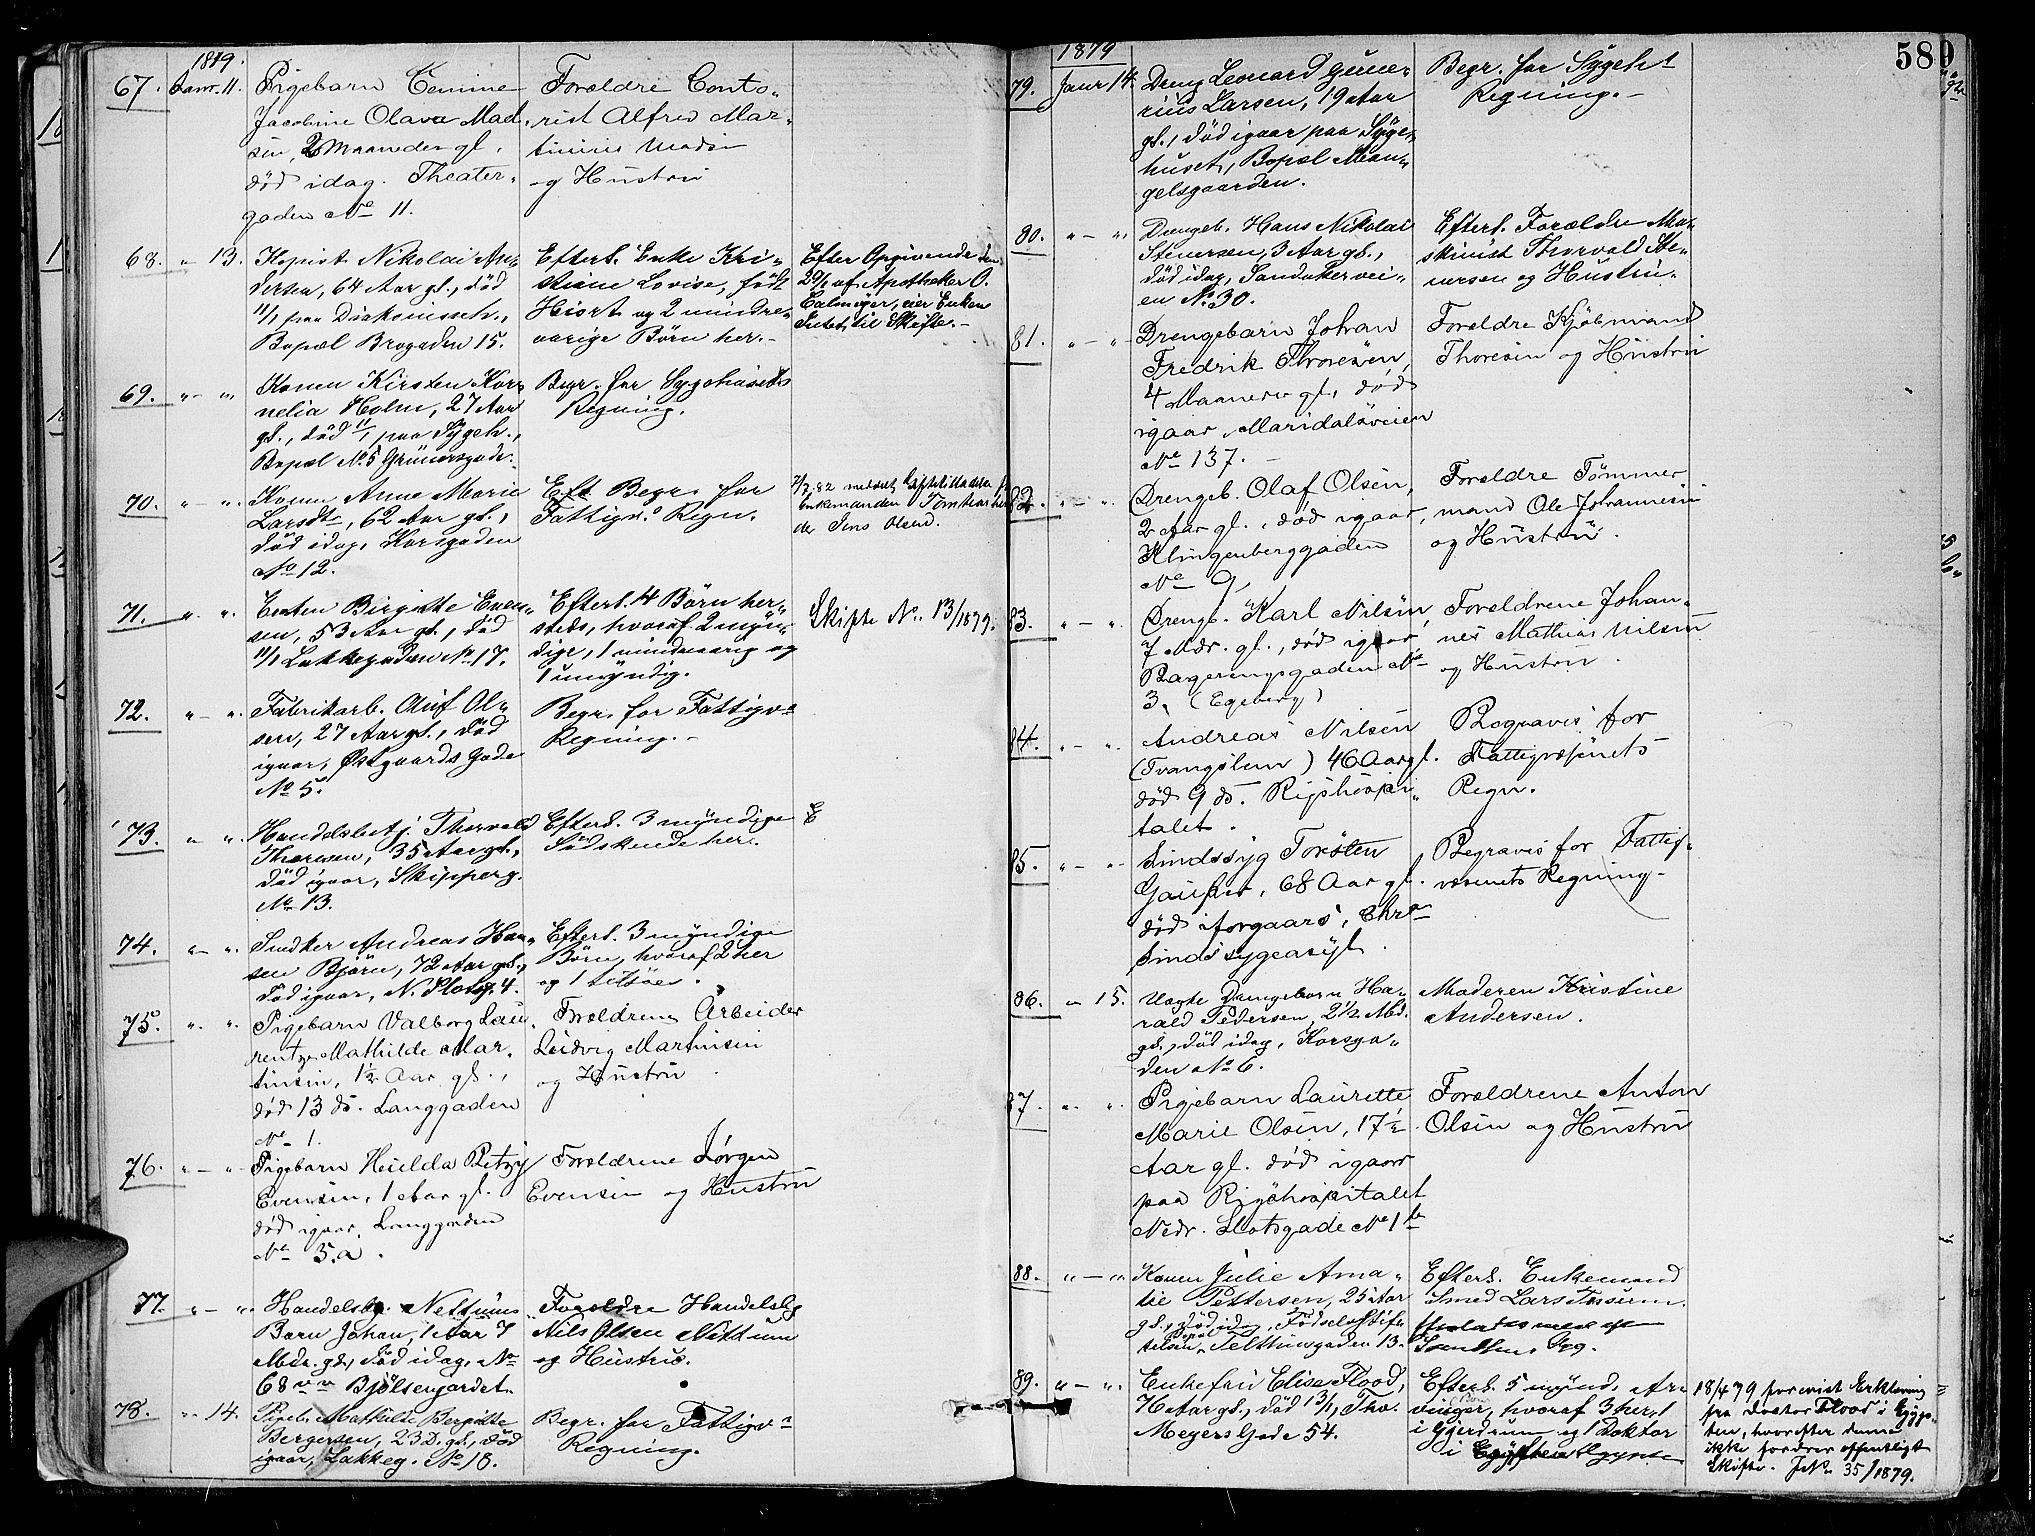 1879.
67. Janr. 11. Pigebarn
Jacobine Olava Mad-
sen, 2 Maaneder gl.,
død idag. Theater-
gaden No 11.
Forældre Conto-
rist Alfred Mar-
tinius Madsen
og Hustru
68. " 13. Kopist Nikolai An-
dersen, 64 Aar gl., død
11/1 paa Diakonisseh.,
Bopæl Brogaden 15.
Efterl. Enke Kri-
stiane Lovise, født
Hiort og 2 mindre-
aarige Børn her.-
Efter Opgivende den
29/1 af Apotheker O.
eier Enken
Intet til Skifte.-
69. " - " Konen Kirsten Kor-
nelia Holm, 27 Aar
gl., død 11/1 paa Sygeh.,
Bopæl No 5 Grünersgade.
Begr. for Sygehusets
Regning.
70. " - " Konen Anne Marie
Larsdtr, 62 Aar gl.,
død idag, Korsgaden
No 12.
Begr. for
Fattigv. Regn.
7/2 82 meddelt
Enkemanden
de Jens Olsen.
71. " " Enken Birgitte Even-
sen, 53 Aar gl., død
11/1 Lakkegaden No 17.
Efterl. 4 Børn her-
steds, hvoraf 2 myn-
dige, 1 mindreaarig og
1 umyndig.
Skifte No. 13/1879.
72. " - " Fabrikarb. Oluf Ol-
sen, 27 Aar gl., død
igaar, Østgaards Gade
No 5.
Begr. for Fattigv.
Regning.-
73. " " Handelsbetj. Thorvald
Thoresen, 35 Aar gl.,
død igaar, Skipperg.
No 13.
Efterl. 3 myndige
Sødskende her.
E
74. " - " Snedker Andreas Han-
sen Bjørn, 72 Aar gl.,
død igaar, N. Slotsg. 4.
Efterl. 3 myndige
Børn, hvoraf 2 her
og 1 tilsøes.
75. " " Pigebarn Valborg Lau-
rentze Mathilde Mar-
tinsen, 1½ Aar gl.,
død 13 ds. Langgaden
No 1.
Forældrene Arbeider
Ludvig Martinsen
og Hustru.
76. " - " Pigebarn Hulda Betzy
Evensen, 1 Aar gl.
død igaar, Langgaden
No 5.a.
Forældrene Jørgen
Evensen og Hustru
77. " - " Handelsb. Nettums
Barn Johan, 1 Aar 7
Mdr. gl., død idag, No
68 Bjølsenjordet.
Forældre Handelsb.
Nils Olsen Nettum
og Hustru.
78. " 14. Pigeb. Mathilde Bergitte
Bergersen, 23 D. gl., død
igaar, Lakkeg. No 18.
Begr. for Fattigv.
Regning.
589
1879
79. Janr 14. Dreng Leonard Gune-
rius Larsen, 19 Aar
gl., død igaar paa Syge-
huset, Bopæl Man-
gelsgaarden.
Begr. for Sygeh.
Regning.-
80. " - " Drengeb. Hans Nikolai
Stenersen, 3 Aar gl.,
død idag, Sandakervei-
en No 30.
Efterl. Forældre Ma-
skinist Thorvald Ste-
nersen og Hustru.
81. " - " Drengebarn Johan
Fredrik Thoresen,
4 Maaneder gl., død
igaar, Maridalsveien
No 137.
Forældre Kjøbmand
Thoresen og Hustru
82. " - " Drengeb. Olaf Olsen,
2 Aar gl., død igaar,
Klingenberggaden
No 9,
Forældre Tømmer-
mand Ole Johannesen
og Hustru.
83. " - " Drengb. Karl Nilsen,
7 Mdr. gl., død igaar,
No
3. (Egeberg)
Forældrene Johan-
nes Mathias Nilsen
og Hustru.
84. " - " Andreas Nilsen
(Tvangslem) 46 Aar gl.
død 9 ds. Rigshospi-
talet.
Begraves for
Fattigvæsenets
Regn.
85. " - " Sindssyg Torsten
68 Aar gl.
død iforgaars, Chra
Sindssygeasyl.
Begraves for Fattig-
væsenets Regning-
86. " 15. Uægte Drengebarn Ha-
rald Pedersen, 2½ Md.
gl., død idag, Korsga-
den No 6.
Moderen Kristine
Andersen.
87. " " Pigebarn Laurette
Marie Olsen, 17½
Aar gl. død igaar
paa Rigshospitalet
Nedr. Slotsgade No 1b
Forældrene Anton
Olsen og Hustru
88. " - " Konen Julie Ama-
lie Pettersen, 25 Aar
gl., død idag, Fødselsstif-
telsen, Bopæl Telthusgaden 13.
Efterl. Enkemand
Smed Lars
89. " - " Enkefru Elise Flood,
76 Aar gl., død 13/1, Thv.
Meyers Gade 54.
Efterl. 5 mynd. Ar-
vinger, hvoraf 3 her, 1
i Gjerdrum og 1 Doktor
i Egypten
18/4 79 forevist Erklæring
fra Doctor Flood i Egyp-
ten, hvorefter denne
ikke fordrer offentligt
Skifte. JNo 35/1879.